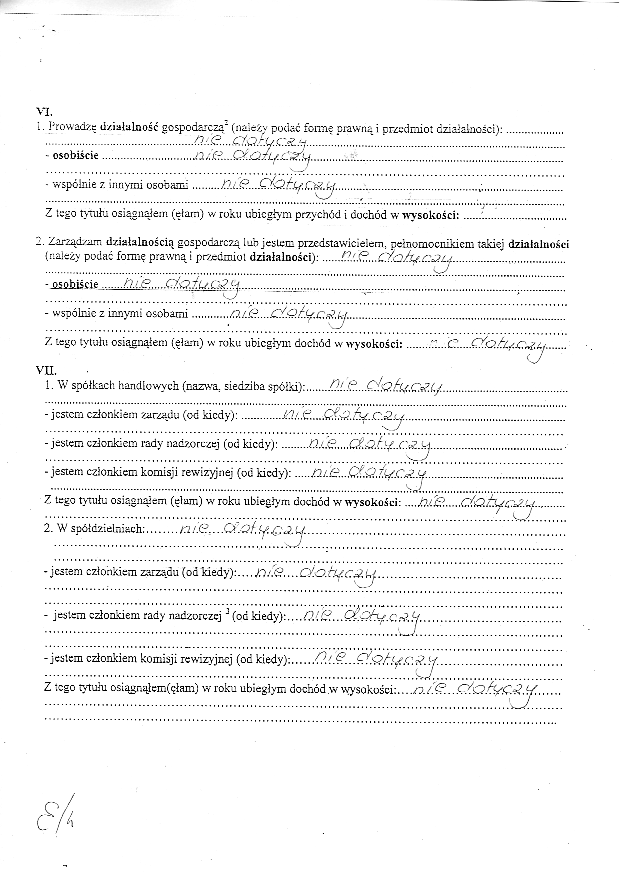 VI.
1. Prowadzę działalność gospodarczą² (należy podać formę prawną i przedmiot działalności): ....................
nie dotyczy
- osobiście ............ nie dotyczy
- wspólnie z innymi osobami ......... nie dotyczy
Z tego tytułu osiągnąłem (ęłam) w roku ubiegłym przychód i dochód w wysokości: ....................
2. Zarządzam działalnością gospodarczą lub jestem przedstawicielem, pełnomocnikiem takiej działalności
(należy podać formę prawną i przedmiot działalności): ...... nie dotyczy
- osobiście ...... nie dotyczy
- wspólnie z innymi osobami ............ nie dotyczy
Z tego tytułu osiągnąłem (ęłam) w roku ubiegłym dochód w wysokości: ........ dotyczy
VII.
1. W spółkach handlowych (nazwa, siedziba spółki):....... nie dotyczy
- jestem członkiem zarządu (od kiedy): ............ nie dotyczy
- jestem członkiem rady nadzorczej (od kiedy): ........ nie dotyczy
- jestem członkiem komisji rewizyjnej (od kiedy): ..... nie dotyczy
Z tego tytułu osiągnąłem (ęłam) w roku ubiegłym dochód w wysokości: .... nie dotyczy
2. W spółdzielniach:......... nie dotyczy
- jestem członkiem zarządu (od kiedy):..... nie dotyczy
- jestem członkiem rady nadzorczej ³ (od kiedy):.... nie dotyczy
- jestem członkiem komisji rewizyjnej (od kiedy):...... nie dotyczy
Z tego tytułu osiągnąłem(ęłam) w roku ubiegłym dochód w wysokości:.... nie dotyczy